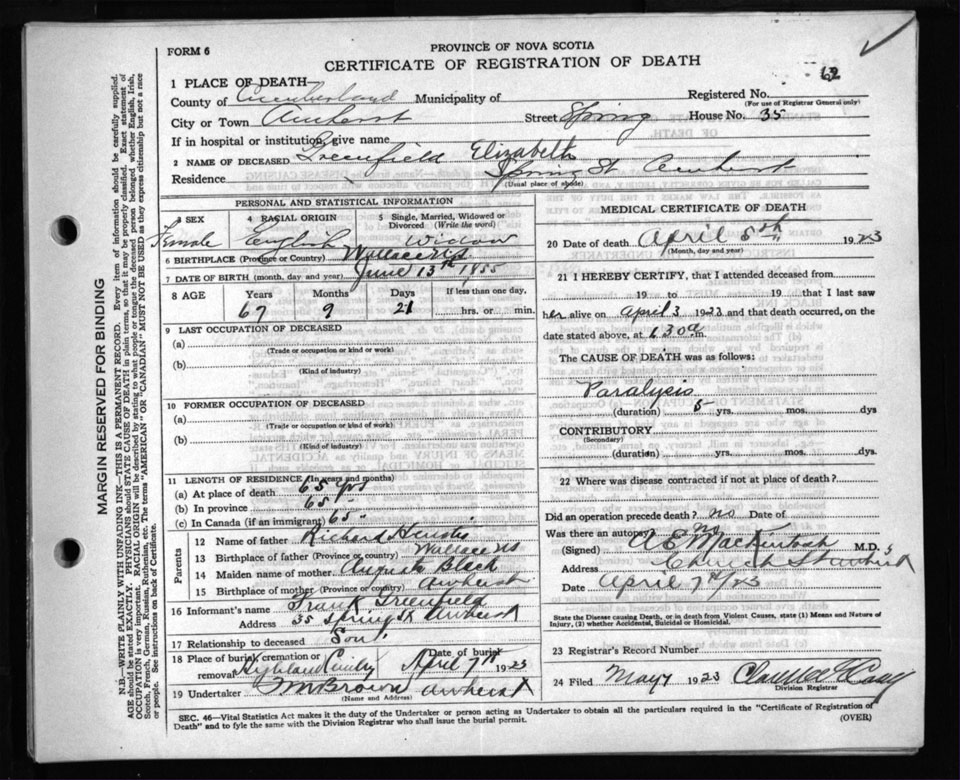 62
FORM 6
PROVINCE OF NOVA SCOTIA
CERTIFICATE OF REGISTRATION OF DEATH
1 PLACE OF DEATH
Registered No.
(For use of Registrar General only)
County of Cumberland Municipality of
City or Town Amherst Street Spring House No. 35
If in hospital or institution, give name
2 NAME OF DECEASED Greenfield Elizabeth
Residence Spring St Amherst
(Usual place of abode)
PERSONAL AND STATISTICAL INFORMATION
3 SEX 4 RACIAL ORIGIN 5 Single, Married, Widowed or Divorced (Write the word)
Female English Widow
6 BIRTHPLACE (Province or Country) Wallace NS
7 DATE OF BIRTH (month, day and year) June 13th 1855
8 AGE Years Months Days If less than one day,
67 9 21 hrs. or min.
9 LAST OCCUPATION OF DECEASED
(a)
(Trade or occupation or kind of work)
(b)
(Kind of industry)
10 FORMER OCCUPATION OF DECEASED
(a)
(Trade or occupation or kind of work)
(b)
(Kind of industry)
11 LENGTH OF RESIDENCE (In years and months)
(a) At place of death 65 yrs
(b) In province 65 "
(c) In Canada (if an immigrant) 65 "
Parents
12 Name of father Richard
13 Birthplace of father (Province or country) Wallace NS
14 Maiden name of mother Augusta Black
15 Birthplace of mother (Province or country) Amherst
16 Informant's name Frank Greenfield
Address 35 Spring St Amherst
17 Relationship to deceased Son
18 Place of burial, cremation or removal Highland Date of burial April 7th 1923
19 Undertaker Brown Amherst
(Name and Address)
MEDICAL CERTIFICATE OF DEATH
20 Date of death April 5th 1923
(Month, day and year)
21 I HEREBY CERTIFY, that I attended deceased from
19 to 19 that I last saw
her alive on April 3 1923 and that death occurred, on
date stated above, at 6.30 a m.
The CAUSE OF DEATH was as follows:
Paralysis
(duration) 5 yrs. mos. dys
CONTRIBUTORY
(Secondary)
(duration) yrs. mos. dys.
22 Where was disease contracted if not at place of death?
Did an operation precede death? no Date of
Was there an autopsy no
(Signed) A E Mackintosh M.D.
Address Church St Amherst
Date April 7th/23
State the Disease causing Death, or in death from Violent Causes, state (1) Means and Nature of Injury, (2) whether Accidental, Suicidal or Homicidal.
23 Registrar's Record Number
24 Filed May 7 1923
Division Registrar
SEC. 46—Vital Statistics Act makes it the duty of the Undertaker or person acting as Undertaker to obtain all the particulars required in the "Certificate of Registration of
Death" and to fyle the same with the Division Registrar who shall issue the burial permit.
(OVER)
MARGIN RESERVED FOR BINDING
N.B.—WRITE PLAINLY WITH UNFADING INK—THIS IS A PERMANENT RECORD. Every item of information should be carefully supplied.
AGE should be stated EXACTLY. PHYSICIANS should STATE CAUSE OF DEATH in plain terms, so that it may be properly classified. Exact statement of
OCCUPATION is very important. RACIAL ORIGIN will be described by stating to what people or tongue the deceased person belonged, whether English, Irish,
Scotch, French, German, Russian, Ruthenian, etc. The terms "AMERICAN" OR "CANADIAN" MUST NOT BE USED as they express citizenship but not a race
or people. See instructions on back of Certificate.